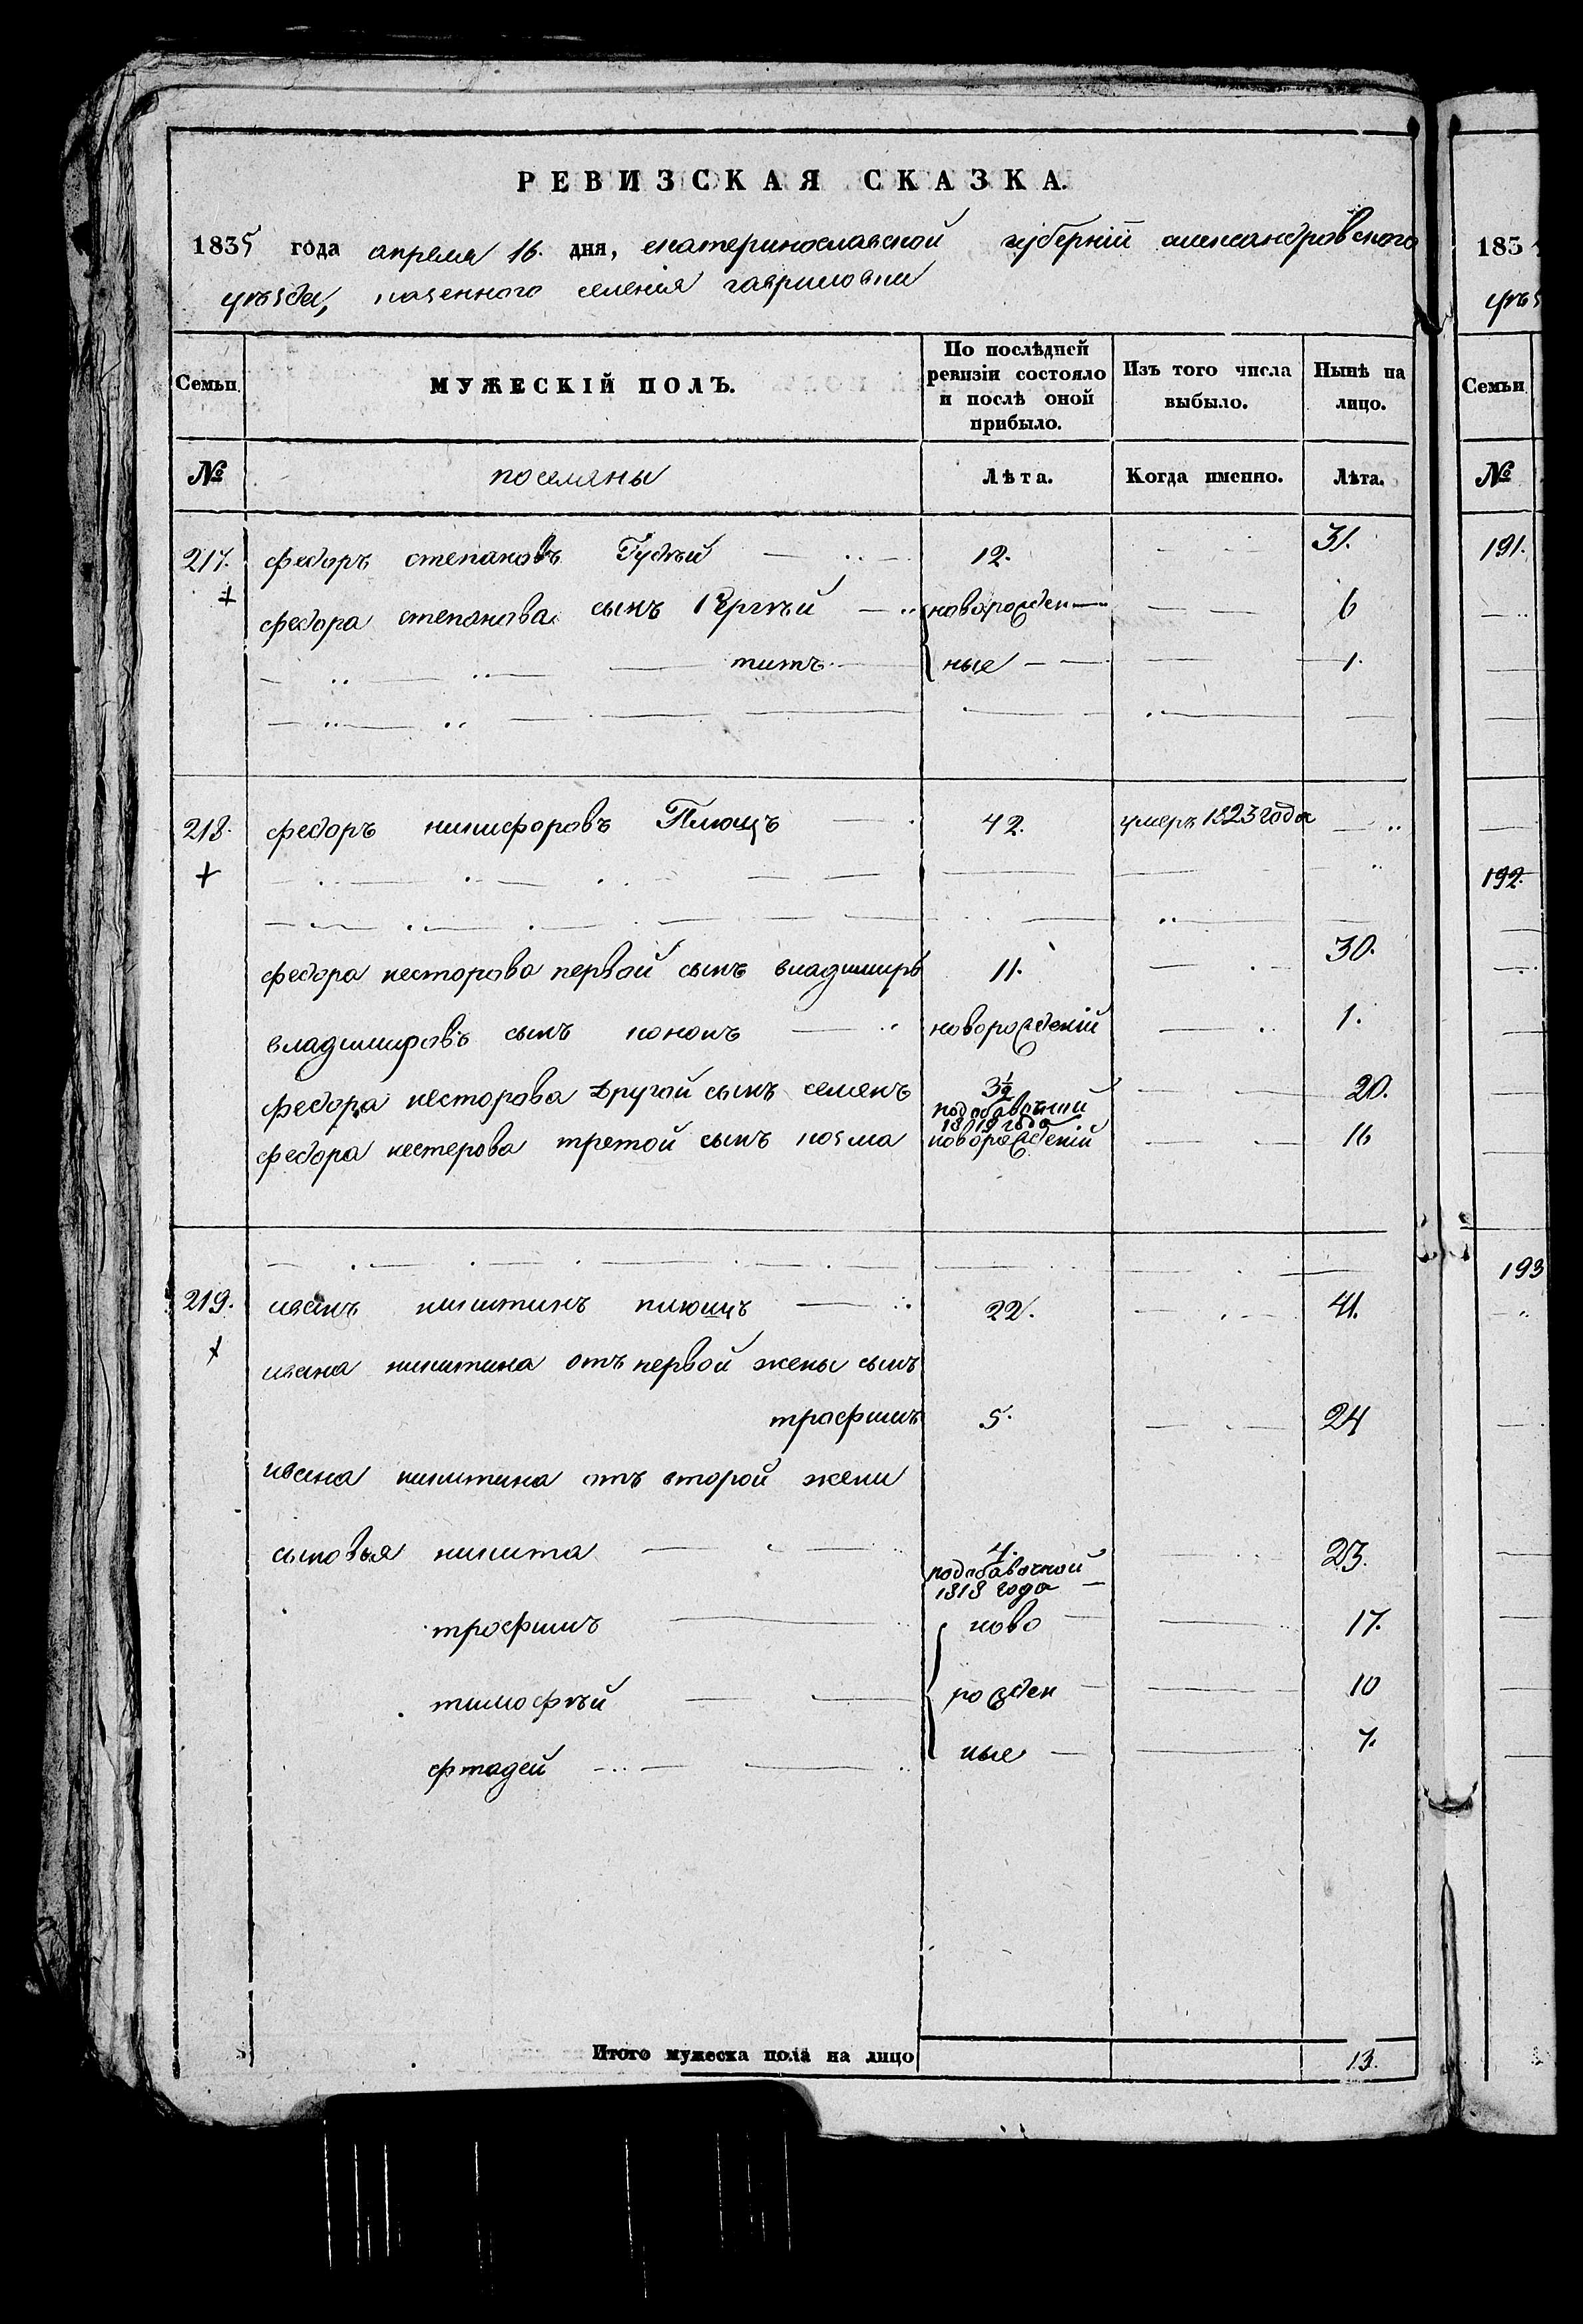 РЕВИЗСКАЯ СКАЗКА.
1835 года апреля 16. дня, екатеринославской губерніи александровского
уѣзда, казенного селенія гавриловки
Семьи МУЖЕСКІЙ ПОЛЪ. По послѣдней ревизіи состояло и послѣ оной прибыло. Изъ того числа выбыло. Нынѣ на лицо.
№ поселяны Лѣта. Когда именно. Лѣта.
217. федоръ степановъ 12. 31.
федора степанова сынъ новорожден 6
титъ ные 1.
218. федоръ никифоровъ Плющъ 42. умеръ 1823 года
федора несторова первой сынъ владимиръ 11. 30.
владимировъ сынъ кононъ новорожденій 1.
федора несторова другой сынъ семенъ 3½ 20.
подобавочной
1818 года
федора нестерова третой сынъ козма новорожденій 16
219. иванъ никитинъ плющъ 22. 41.
ивана никитина отъ первой жены сынъ
трофимъ 5. 24
ивана никитина отъ второй жени
сыновья никита 4. 23.
подобавочной
1818 года
трофимъ ново 17.
тимофѣй рожден 10
фтадей ные 7.
Итого мужеска пола на лицо 13.
183
уѣз
Семьи
№
191.
192.
193